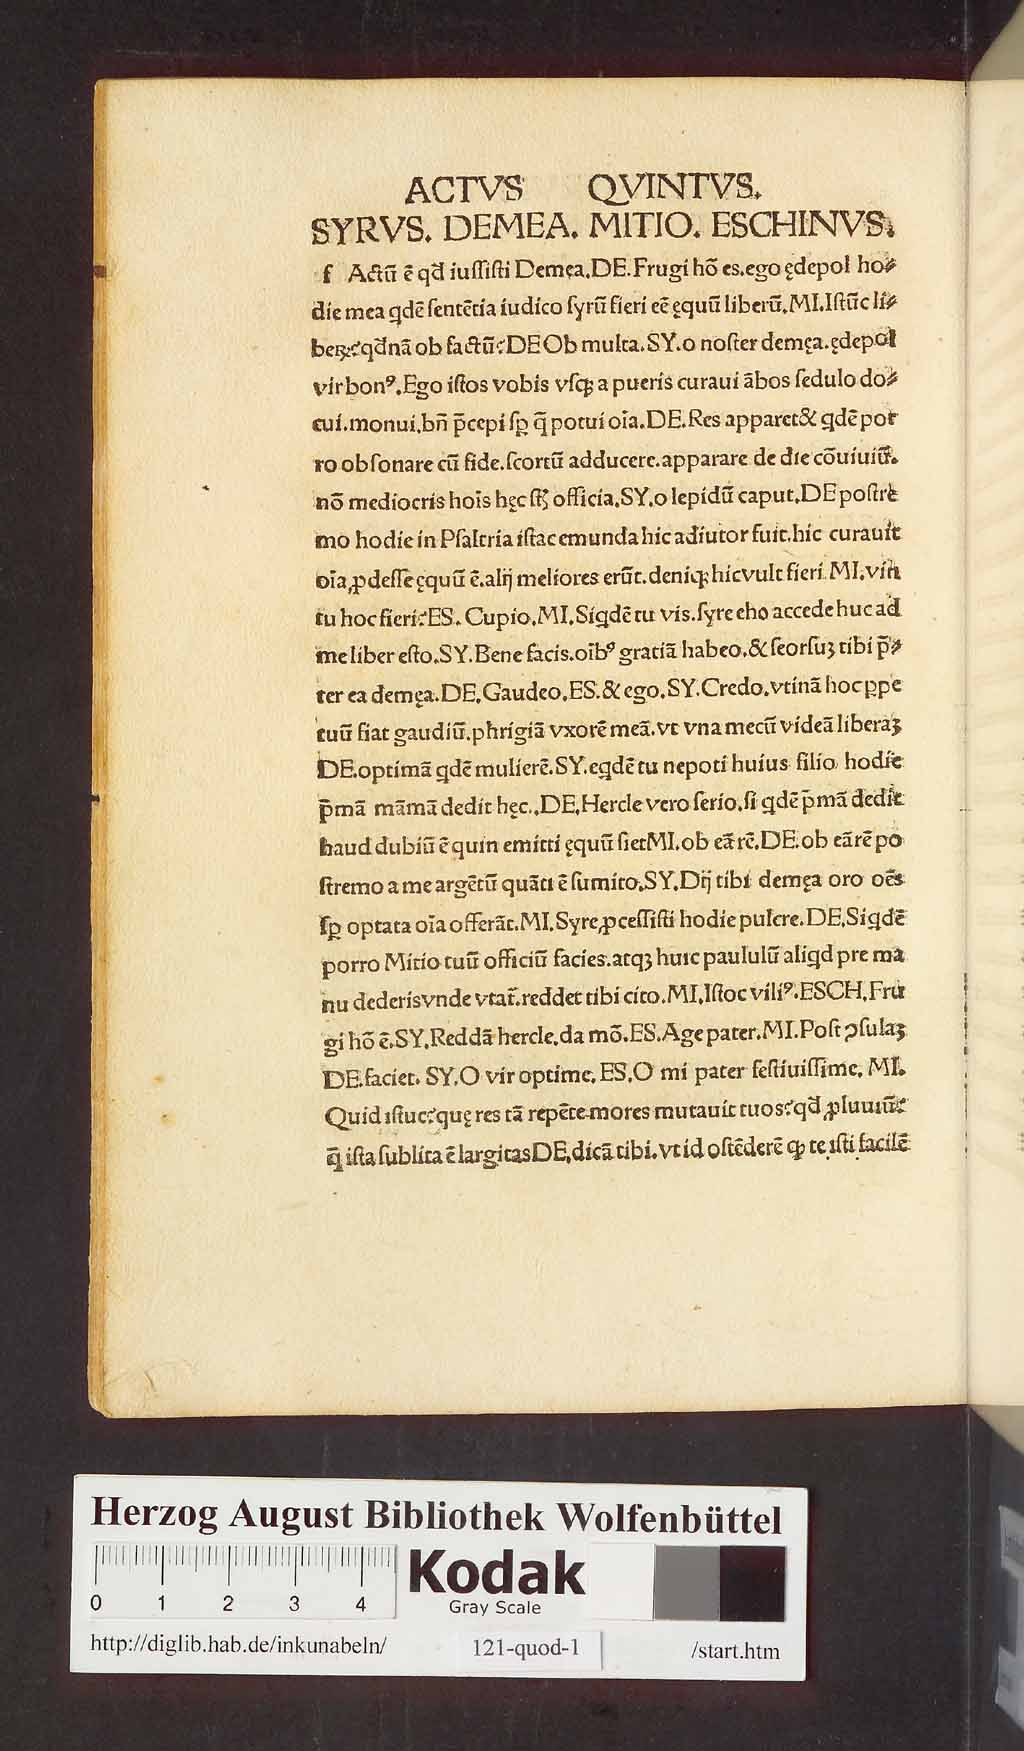 ACTVS QVINTVS.
SYRVS. DEMEA. MITIO. ESCHINVS.
f Actū ē qđ iuſſiſti Demęa.DE.Frugi hō es.ego ędepol ho⸗
die mea qdē ſentētia iudico ſyrū fieri eē ęquū liberū.MI.Iſtūc li⸗
beꝝ?qđnā ob factū?DE Ob multa.SY.o noſter demęa.ędepol
vir bonꝰ.Ego iſtos vobis vſqꝫ a pueris curaui ābos ſedulo do⸗
cui.monui.bn̄ p̄cepi ſꝑ q̄ potui oīa.DE.Res apparet& qdē por
ro obſonare cū fide.ſcortū adducere.apparare de die cōuiuiū.
nō mediocris hoīs hęc ſt̄ officia.SY.o lepidū caput.DE poſtre
mo hodie in Pſaltria iſtac emunda hic adiutor fuit.hic curauit
oīa,ꝓdeſſe ęquū ē.alij meliores erūt.deniqꝫ hic vult fieri MI.vin
tu hoc fieri?ES. Cupio.MI.Siqdē tu vis.ſyre eho accede huc ad
me liber eſto.SY.Bene facis.oībꝰ gratiā habeo.& ſeorſuꝫ tibi p̄⸗
ter ea demęa.DE.Gaudeo.ES.& ego.SY.Credo.vtinā hoc ꝑpe
tuū fiat gaudiū.phrigiā vxorē meā.vt vna mecū videā liberaꝫ
DE.optimā qdē mulierē.SY.eqdē tu nepoti huius filio hodie
p̄mā māmā dedit hęc.DE.Hercle vero ſerio.ſi qdē p̄mā dedit
haud dubiū ē quin emitti ęquū ſiet MI.ob eā rē.DE.ob eā rē po
ſtremo a me argētū quāti ē ſumito.SY.Dij tibi demęa oro oēs
ſꝑ optata oīa offerāt.MI.Syre,ꝓceſſiſti hodie pulcre.DE.Siqdē
porro Mitio tuū officiū facies.atqꝫ huic paululū aliqd pre ma
nu dederis vnde vtat̄.reddet tibi cito.MI.Iſtoc viliꝰ.ESCH.Fru
gi hō ē.SY.Reddā hercle.da mō.ES.Age pater.MI.Poſt ꝯſulaꝫ
DE.faciet. SY.O vir optime. ES.O mi pater feſtiuiſſime. MI.
Quid iſtuc?quę res tā repēte mores mutauit tuos?qđ ꝓluuiū?
q̄ iſta ſubita ē largitas DE.dicā tibi.vt id oſtēderē ꝙ te iſti facilē
Herzog August Bibliothek Wolfenbüttel
0 1 2 3 4
Kodak
Gray Scale
http://diglib.hab.de/inkunabeln/ 121-quod-1 /start.htm